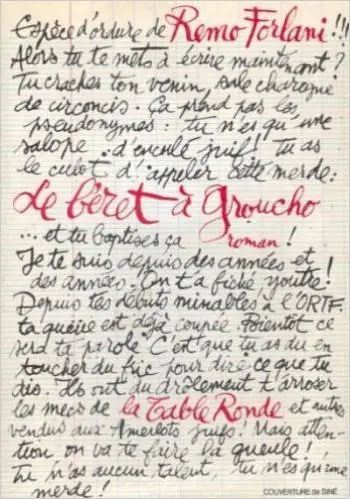 Espèce d'ordure de Remo Forlani !!!
Alors tu te mets à écrire maintenant ?
Tu craches ton venin, sale charogne
de circoncis. Ça prend pas les
pseudonymes : tu n'es qu'une
salope d'enculé juif ! tu as
le culot d'appeler cette merde :
Le béret à Groucho
... et tu baptises ça roman !
Je te suis depuis des années et
des années. On t'a fiché youtre !
Depuis tes débuts minables à l'ORTF.
ta queue est déjà coupée. Bientôt ce
sera ta parole. C'est que tu as du en
toucher du fric pour dire ce que tu
dis. Ils ont du drôlement t'arroser
les mecs de la Table Ronde et autres
vendus aux Amerlots juifs ! Mais atten-
tion on va te faire la gueule !
tu n'as aucun talent, tu n'es qu'une
merde !
COUVERTURE de SINÉ